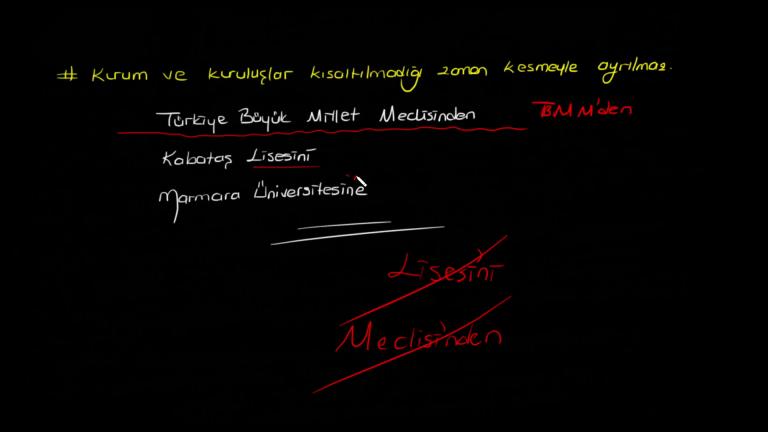 # Kurum ve kuruluşlar kısaltılmadığı zaman kesmeyle ayrılmaz.
Türkiye Büyük Millet Meclisinden TBMM'den
Kabataş Lisesini
Marmara Üniversitesine
Lisesi'ni
Meclisi'nden